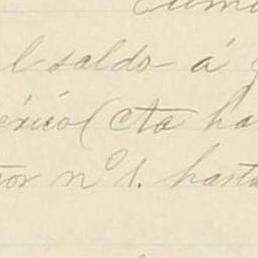 l saldo á
éxico (cta ha
or nº 1. hasta